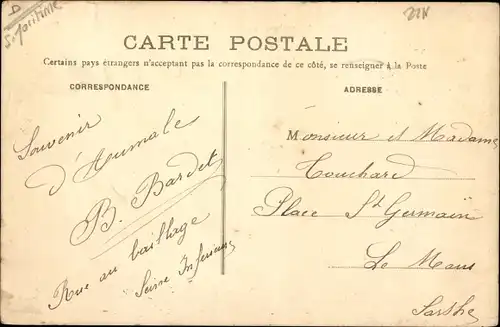 D
S. Maritime
22N
CARTE POSTALE
Certains pays étrangers n'acceptant pas la correspondance de ce côté, se renseigner à la Poste
CORRESPONDANCE
Souvenir
d'Aumale
B. Bardet
Rue au baillage
Seine Inférieure
ADRESSE
Monsieur et Madame
Touchard
Place St Germain
Le Mans
Sarthe